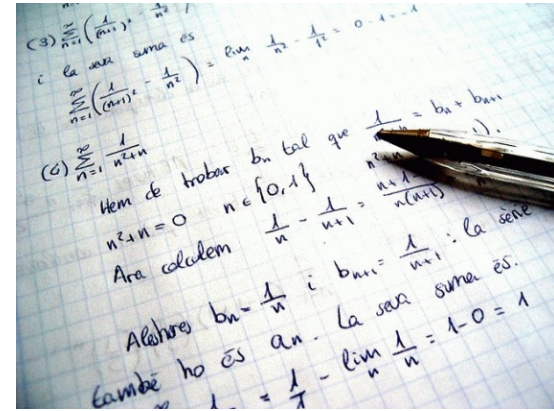 (3) ∑_{n=1}^∞ (1/(n+1)² - 1/n²)
i la seva suma és
∑_{n=1}^∞ (1/(n+1)² - 1/n²) = lim_n 1/n² - 1/1² = 0 - 1 = -1
(4) ∑_{n=1}^∞ 1/(n²+n)
Hem de trobar bn tal que 1/ = bn + bn+1
n²+n = 0 n ∈ {0, 1}
Ara calculem 1/n - 1/(n+1) = (n+1-)/(n(n+1))
Aleshores bn = 1/n i bn+1 = 1/(n+1) : la sèrie
també ho és an. La seva suma és.
= 1/1 - lim_n 1/n = 1 - 0 = 1